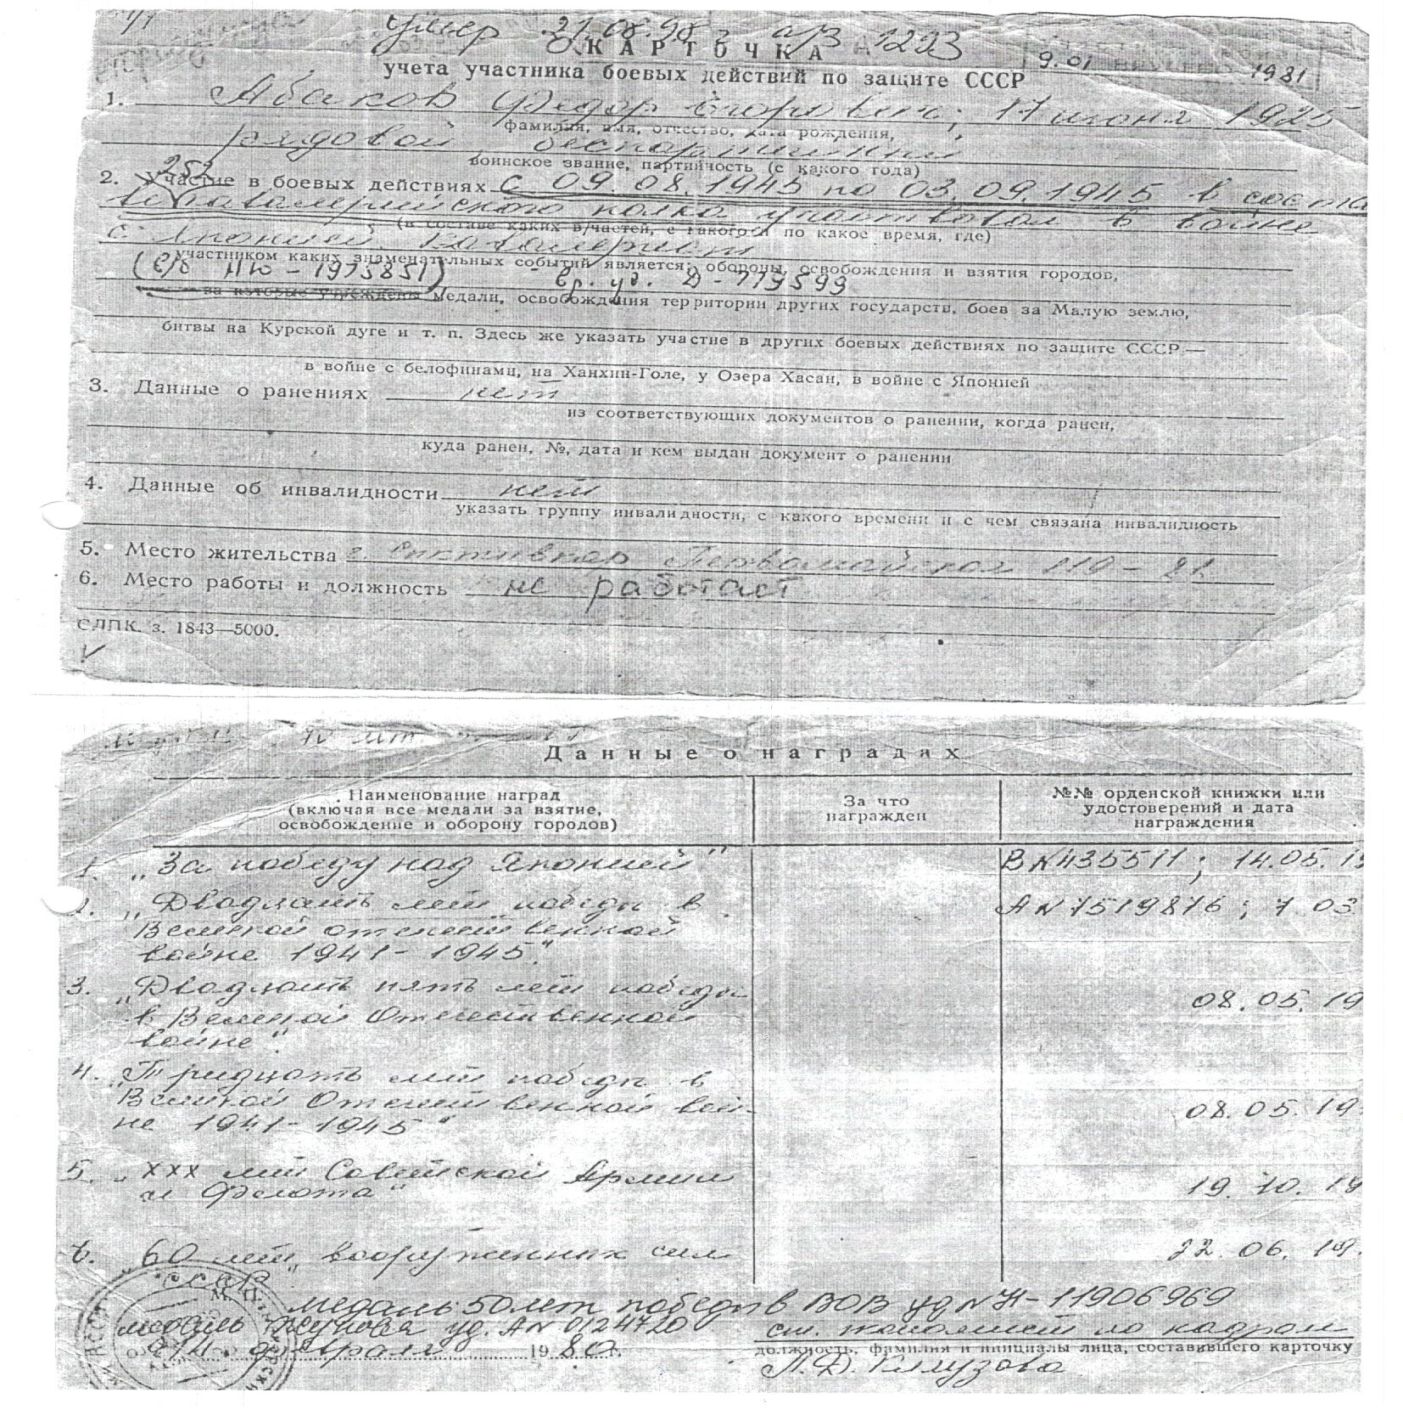 умер 21.08.98 г. а/з 1293
КАРТОЧКА
9.01 1981
учета участника боевых действий по защите СССР
1. Абаков Федор Егорович; 17 июня 1925
фамилия, имя, отчество, дата рождения,
рядовой, беспартийный
воинское звание, партийность (с какого года)
252
2. Участие в боевых действиях с 09.08.1945 по 03.09.1945 в соста
ве кавалерийского полка участвовал в войне
(в составе каких в/частей, с какого и по какое время, где)
с Японией. Кавалерист
участником каких знаменательных событий является: обороны, освобождения и взятия городов,
(с/б НЮ - 1975851) вр. уд. Д - 779599
за которые учреждены медали, освобождения территории других государств, боев за Малую землю,
битвы на Курской дуге и т. п. Здесь же указать участие в других боевых действиях по защите СССР —
в войне с белофинами, на Ханхин-Голе, у Озера Хасан, в войне с Японией
3. Данные о ранениях нет
из соответствующих документов о ранении, когда ранен,
куда ранен, №, дата и кем выдан документ о ранении
4. Данные об инвалидности нет
указать группу инвалидности, с какого времени и с чем связана инвалидность
5. Место жительства г. Сыктывкар Первомайская 110 -
6. Место работы и должность не работает
СЛПК. з. 1843—5000.
Данные о наградах
Наименование наград
(включая все медали за взятие,
освобождение и оборону городов)
За что
награжден
№№ орденской книжки или
удостоверений и дата
награждения
1. „За победу над Японией" В№435511; 14.05.19
2. „Двадцать лет победы в А№7519876; 7 03.
Великой отечественной
войне 1941-1945".
3. „Двадцать пять лет победы
в Великой Отечественной 08.05.19
войне".
4. „Тридцать лет победы в
Великой Отечественной вой- 08.05.19
не 1941-1945"
5. „XXX лет Советской Армии
и Флота" 19.10.19
6. „60 лет вооруженных сил 22.06.19
СССР"
М. П.
медаль 50 лет победы в ВОВ уд № 11906969
медаль Жукова уд. А№ 0124720
февраля 1980 г.
ст. по кадрам
должность, фамилия и инициалы лица, составившего карточку